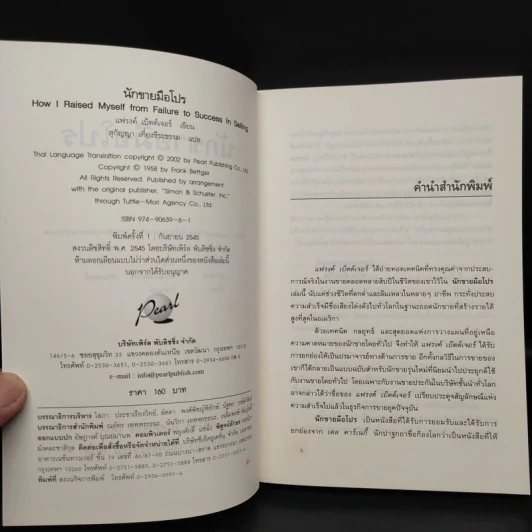 นักขายมือโปร
How I Raised Myself from Failure to Success In Selling
แฟรงค์ เบ็ตต์เจอร์ เขียน
สุกัญญา เที่ยงธีระธรรม แปล
Thai Language Translation copyright © 2002 by Pearl Publishing Co., Ltd.
Copyright © 1958 by Frank Bettger
All Rights Reserved. Published by arrangement
with the original publisher, "Simon & Schuster, Inc."
through Tuttle-Mori Agency Co., Ltd.
ISBN 974-90639-6-1
พิมพ์ครั้งที่ 1 : กันยายน 2545
สงวนลิขสิทธิ์ พ.ศ. 2545 โดยบริษัทเพิร์ล พับลิชชิ่ง จำกัด
ห้ามลอกเลียนแบบไม่ว่าส่วนใดส่วนหนึ่งของหนังสือเล่มนี้
นอกจากได้รับอนุญาต
Pearl
บริษัทเพิร์ล พับลิชชิ่ง จำกัด
146/5-6 ซอยสุขุมวิท 33 แขวงคลองตันเหนือ เขตวัฒนา กรุงเทพฯ
โทรศัพท์ 0-2530-3651, 0-2530-3661
e-mail : info@pearlpublish.com
ราคา 160 บาท
บรรณาธิการบริหาร โสภา
บรรณาธิการสำนักพิมพ์
ออกแบบปก คอมพิวเตอร์ พิสูจน์อักษร
ติดต่อเพื่อสั่งซื้อหรือจัดจำหน่ายได้ที่
ชั้น 19 เลขที่ 46/87-90
กรุงเทพฯ 10260 โทรศัพท์ 0-2751-5885,
พิมพ์ที่ โทรศัพท์
คำนำสำนักพิมพ์
แฟรงค์ เบ็ตต์เจอร์ ได้ถ่ายทอดเทคนิคที่ทรงคุณค่าจากประสบ-
การณ์จริงในงานขายตลอดหลายสิบปีในชีวิตของเขาไว้ใน นักขายมือโปร
เล่มนี้ นับแต่ช่วงชีวิตที่ตกต่ำและล้มเหลวในหลายๆ อาชีพ กระทั่งประสบ
ความสำเร็จมีชื่อเสียงโด่งดังไปทั่วโลกในฐานะของนักขายที่สร้างรายได้
สูงที่สุดในอเมริกา
ด้วยเทคนิค กลยุทธ์ และสุดยอดแห่งการวางแผนที่อยู่เหนือ
ความคาดหมายของนักขายโดยทั่วไป จึงทำให้ แฟรงค์ เบ็ตต์เจอร์ ได้รับ
การยกย่องให้เป็นปรมาจารย์ทางด้านการขาย อีกทั้งกลวิธีในการขายของ
เขาก็ได้กลายเป็นแบบฉบับสำหรับนักขายรุ่นใหม่ที่นิยมนำไปประยุกต์ใช้
กับงานขายโดยทั่วไป โดยเฉพาะกับงานขายประกันในบริษัทชั้นนำทั่วโลก
อาจกล่าวได้ว่าชื่อของ แฟรงค์ เบ็ตต์เจอร์ เปรียบประดุจสัญลักษณ์แห่ง
ความสำเร็จไปแล้วในธุรกิจการขายยุคปัจจุบัน
นักขายมือโปร เป็นหนังสือที่ได้รับการยอมรับและได้รับการ
ยกย่องจาก เดล คาร์เนกี้ นักปาฐกถาชื่อก้องโลกว่าเป็นหนังสือที่ให้